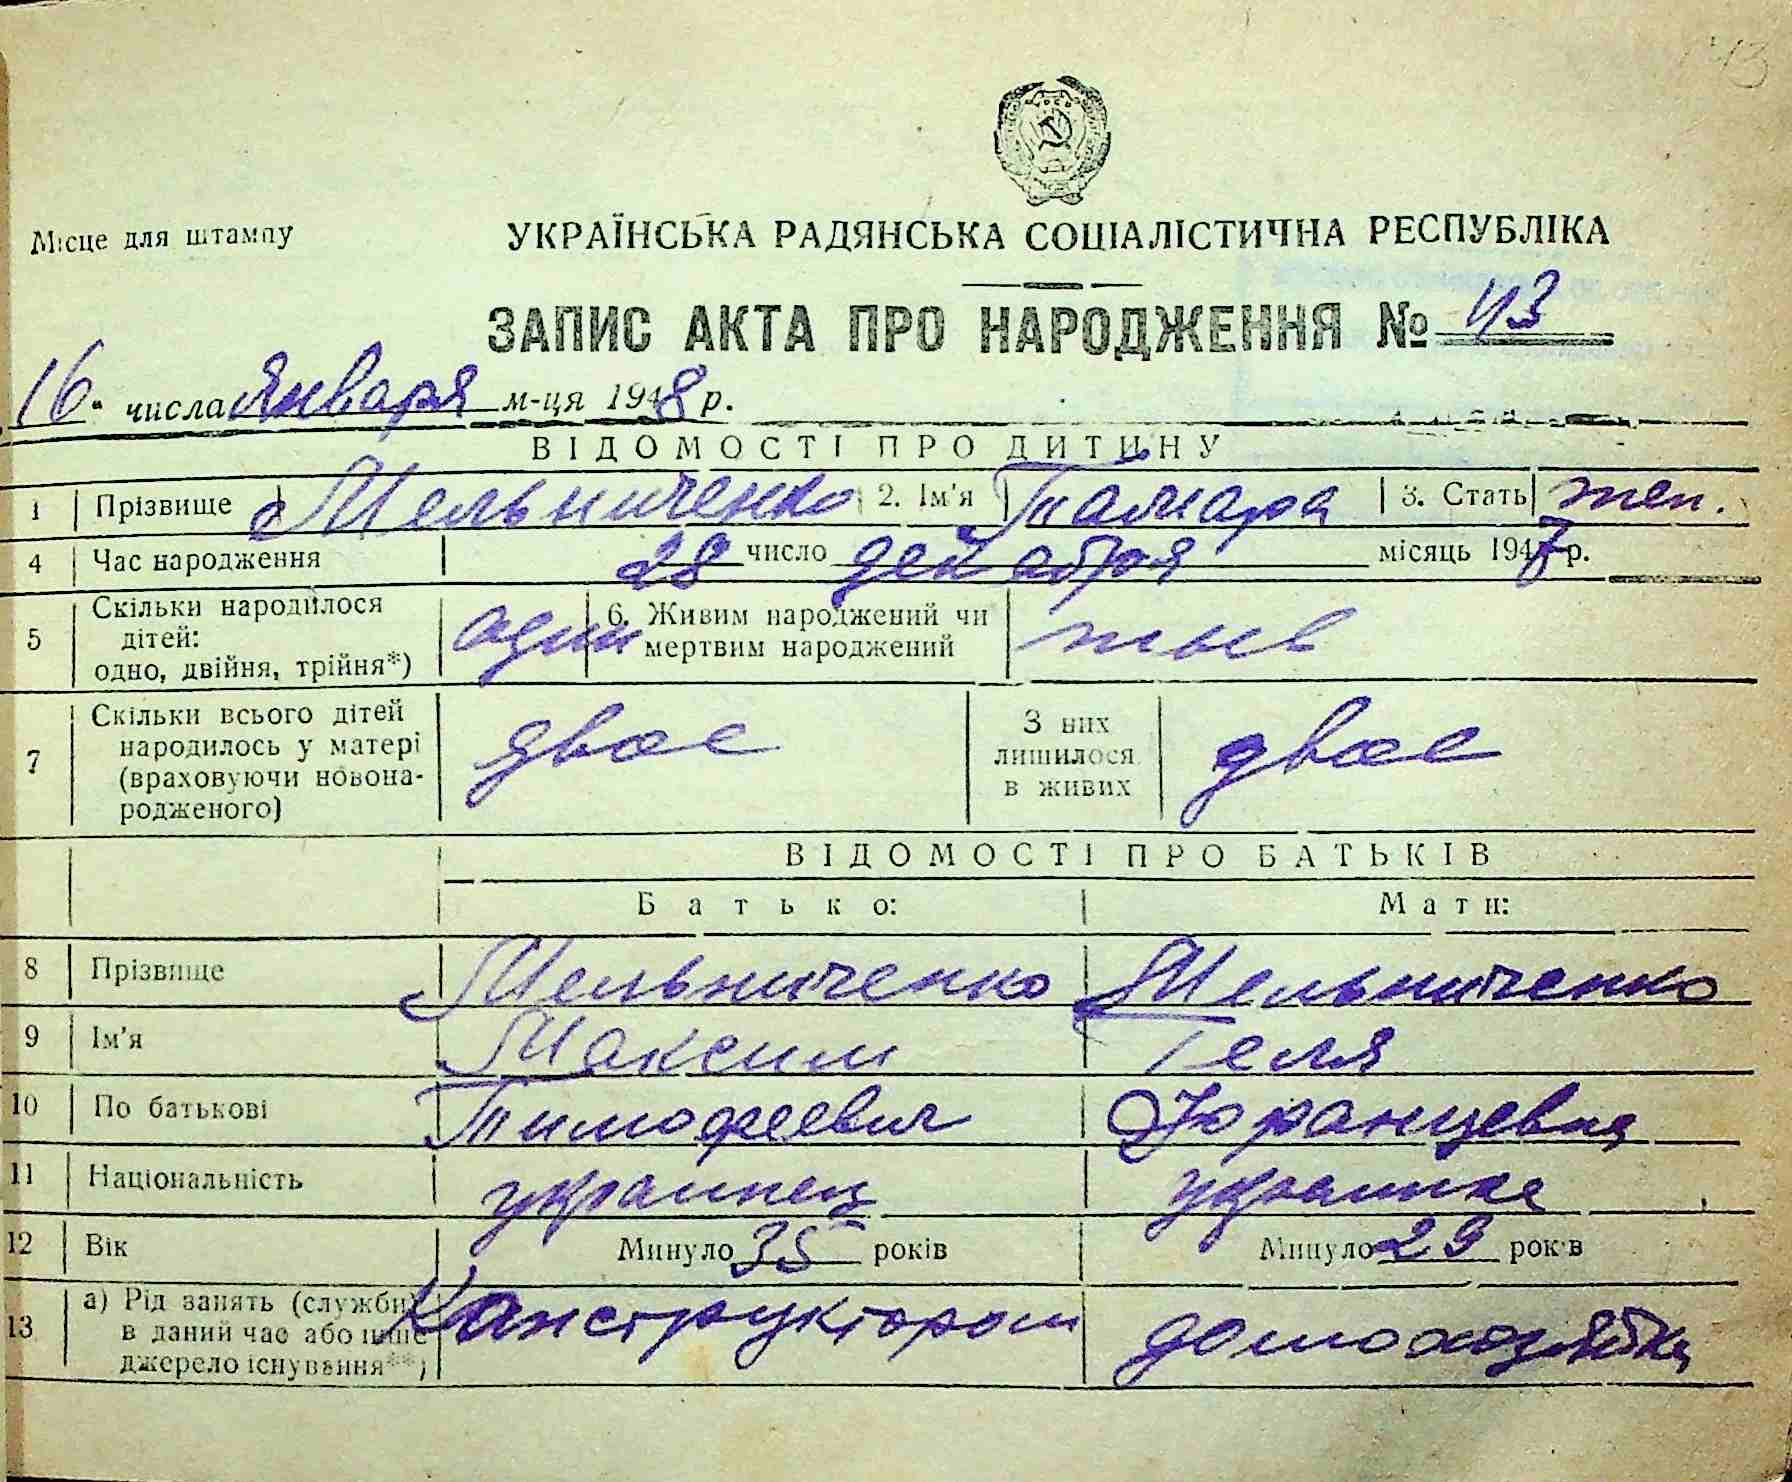 43
Місце для штампу
УКРАЇНСЬКА РАДЯНСЬКА СОЦІАЛІСТИЧНА РЕСПУБЛІКА
ЗАПИС АКТА ПРО НАРОДЖЕННЯ № 43
16 числа января м-ця 1948 р.
ВІДОМОСТІ ПРО ДИТИНУ
1 Прізвище Мельниченко 2. Ім'я Тамара 3. Стать жен.
4 Час народження 28 число декабря місяць 1947 р.
5 Скільки народилося дітей: одно, двійня, трійня*) один 6. Живим народжений чи мертвим народжений жив
7 Скільки всього дітей народилось у матері (враховуючи новонародженого) двое З них лишилося в живих двое
ВІДОМОСТІ ПРО БАТЬКІВ
Батько: Мати:
8 Прізвище Мельниченко Мельниченко
9 Ім'я Максим Геля
10 По батькові Тимофеевич Францевна
11 Національність украинец украинка
12 Вік Минуло 35 років Минуло 29 років
13 а) Рід занять (служби) в даний час або інше джерело існування**) Конструктором домохозяйка